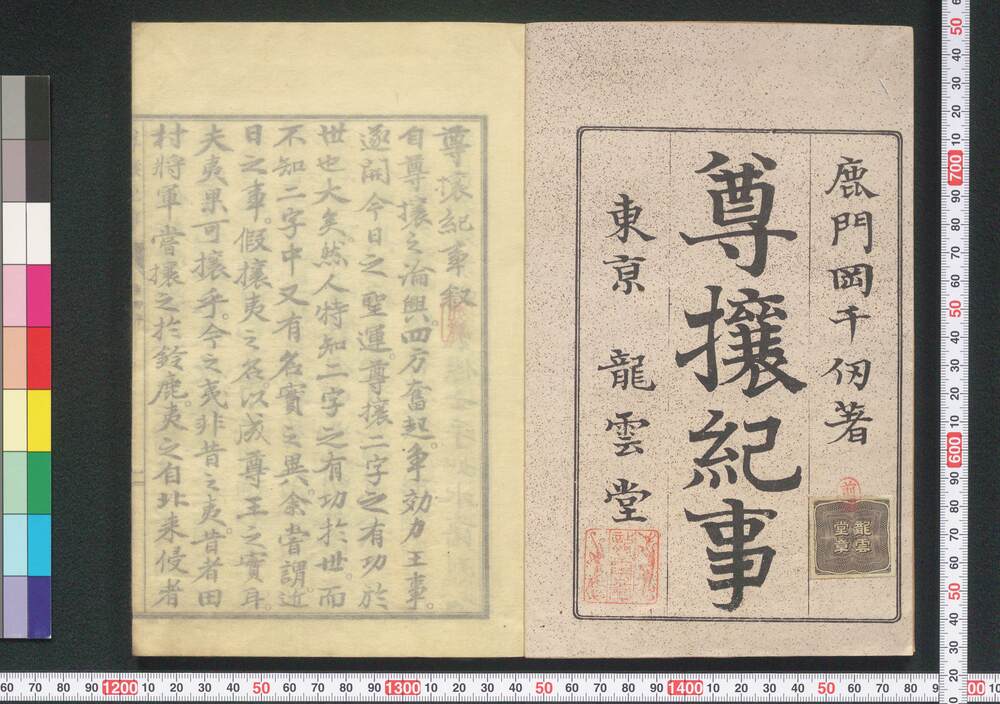 鹿門岡千仞著
尊攘紀事
東亰 龍雲堂
龍雲
堂章
尊攘紀事叙
自尊攘之論興四方奮起争効力王事。
遂開今日之聖運。尊攘二字之有功於
世也大矣然人特知二字之有功於世。而
不知二字中又有名實之異。余嘗謂。近
日之事。假攘夷之名。以成尊王之實耳。
夫夷果可攘乎。今之夷非昔之夷。昔者田
村將軍嘗攘之於鈴鹿。夷之自北来侵者
60 70 80 90 1200 10 20 30 40 50 60 70 80 90 1300 10 20 30 40 50 60 70 80 90 1400 10 20 30 40 50 60 70 80
50 40 30 20 10 700 90 80 70 60 50 40 30 20 10 600 90 80 70 60 50 40 30 20